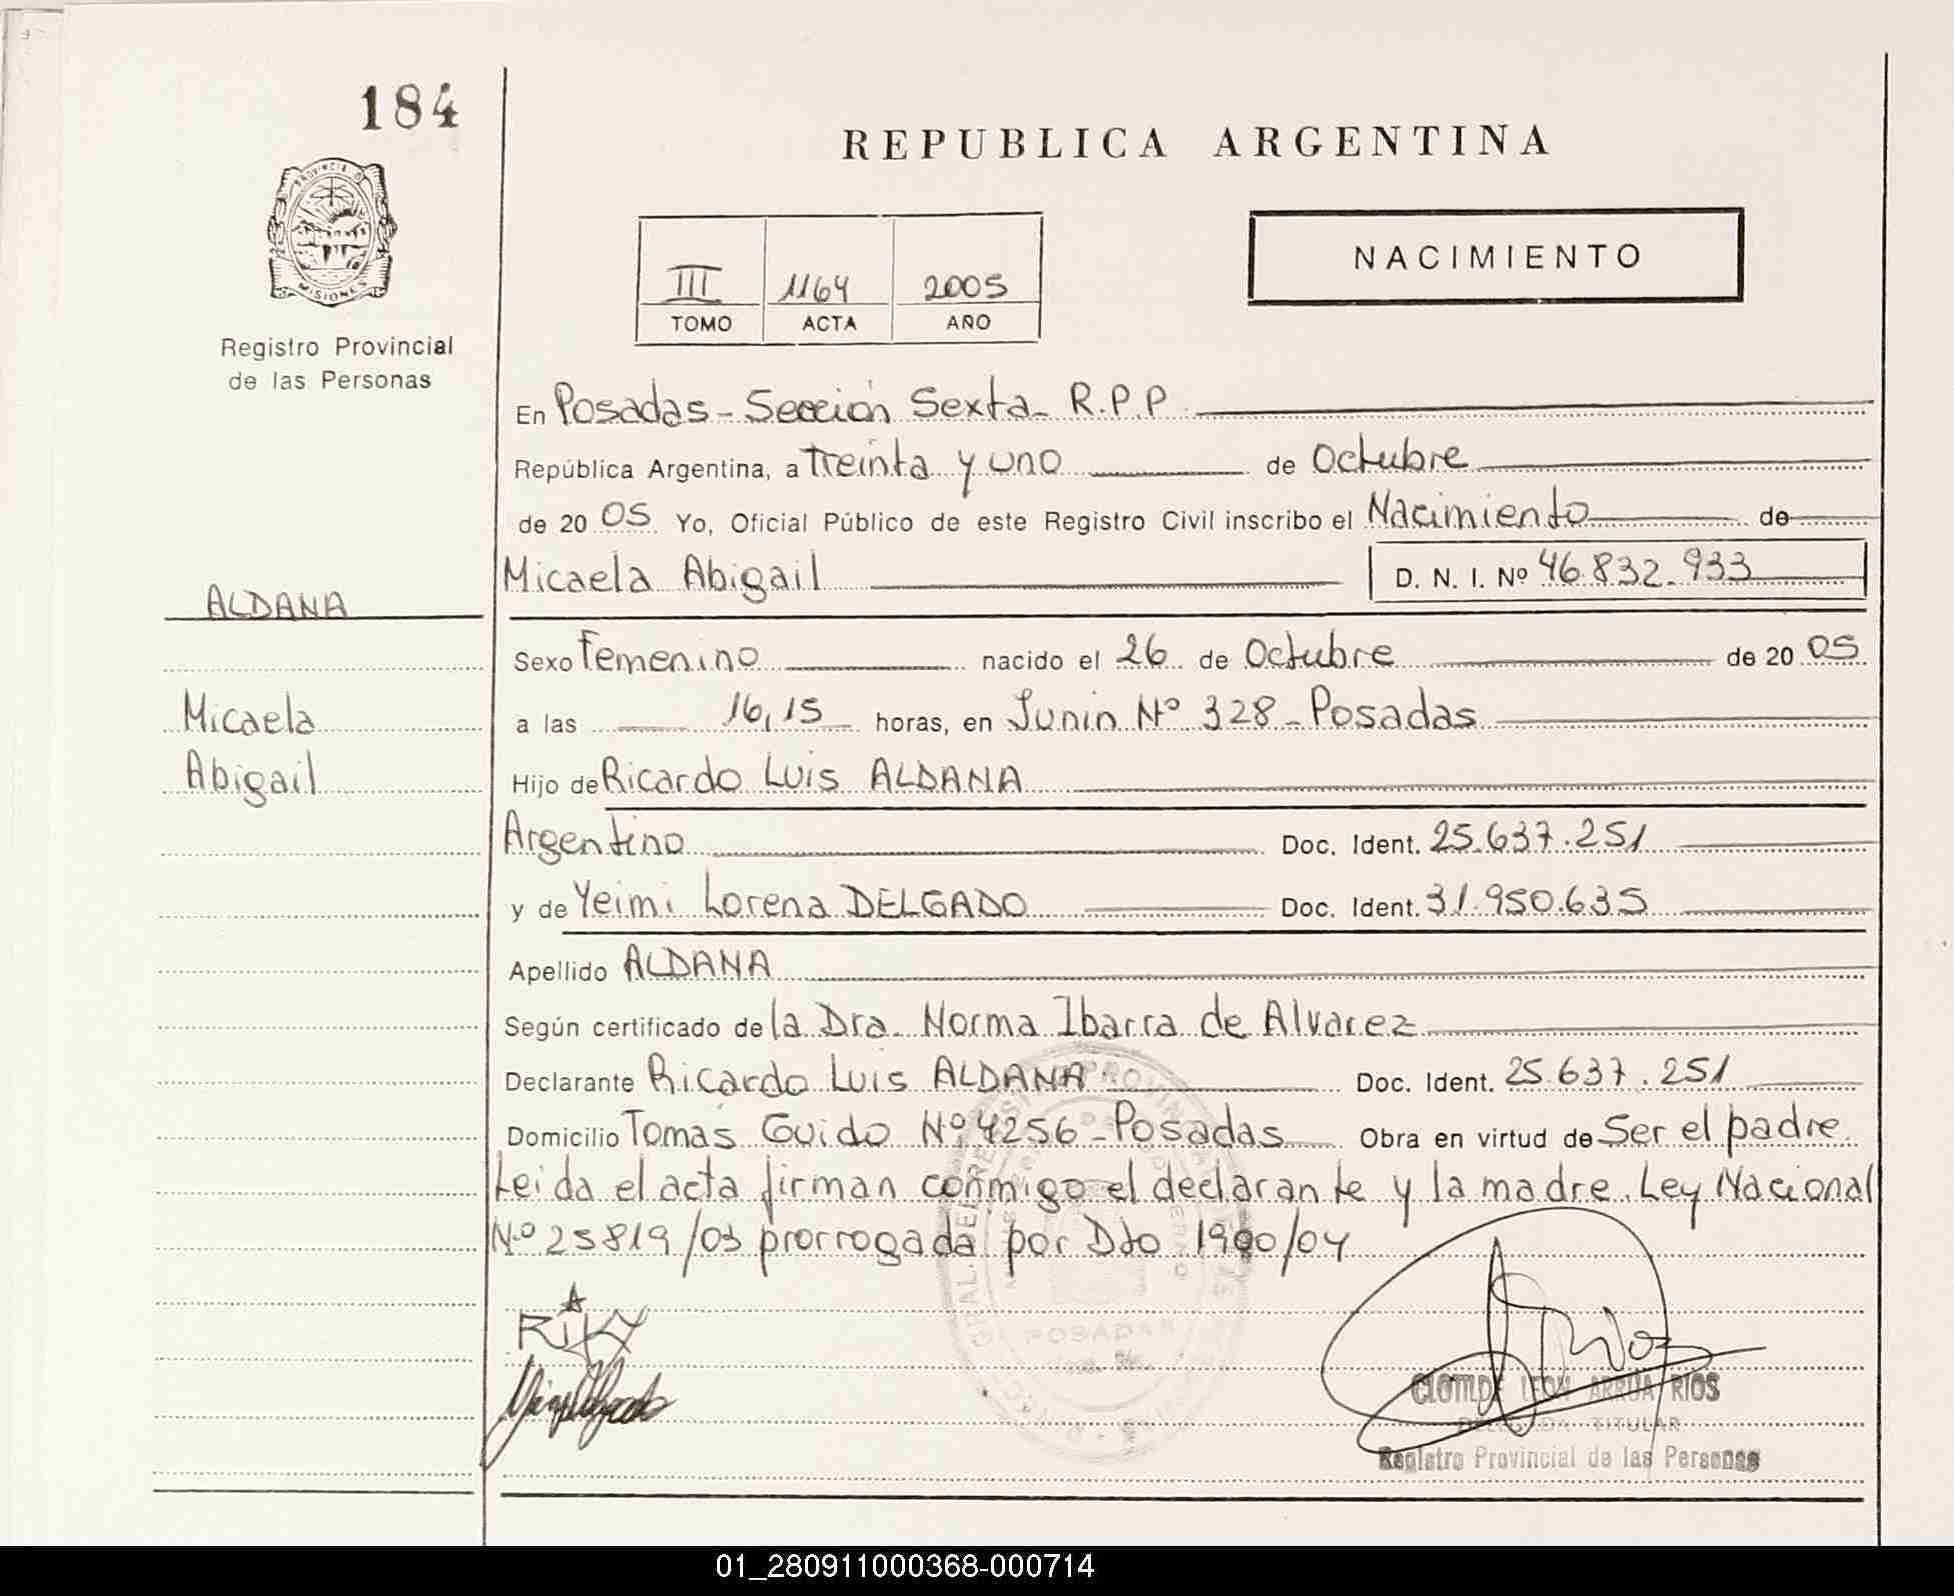 184
REPUBLICA ARGENTINA
PROVINCIA D
MISIONES
Registro Provincial
de las Personas
NACIMIENTO
III 1164 2005
TOMO ACTA AÑO
En Posadas - Sección Sexta - R.P.P
República Argentina, a Treinta y uno de Octubre
de 20 05 Yo, Oficial Público de este Registro Civil inscribo el Nacimiento de
Micaela Abigail D. N. I. Nº 46.832.933
ALDANA
Sexo Femenino nacido el 26 de Octubre de 20 05
Micaela
a las 16,15 horas, en Junin Nº 328 - Posadas
Abigail
Hijo de Ricardo Luis ALDANA
Argentino Doc. Ident. 25.637.251
y de Yeimi Lorena DELGADO Doc. Ident. 31.950.635
Apellido ALDANA
Según certificado de la Dra. Norma Ibarra de Alvarez
Declarante Ricardo Luis ALDANA Doc. Ident. 25.637.251
Domicilio Tomás Guido Nº 4256 - Posadas Obra en virtud de Ser el padre
Leida el acta firman conmigo el declarante y la madre. Ley Nacional
Nº 25819/03 prorrogada por Dto 1900/04
POSADAS
RiKy
CLOTILDE LEON ARRUA RIOS
DELEGADA TITULAR
Registro Provincial de las Personas
01_280911000368-000714